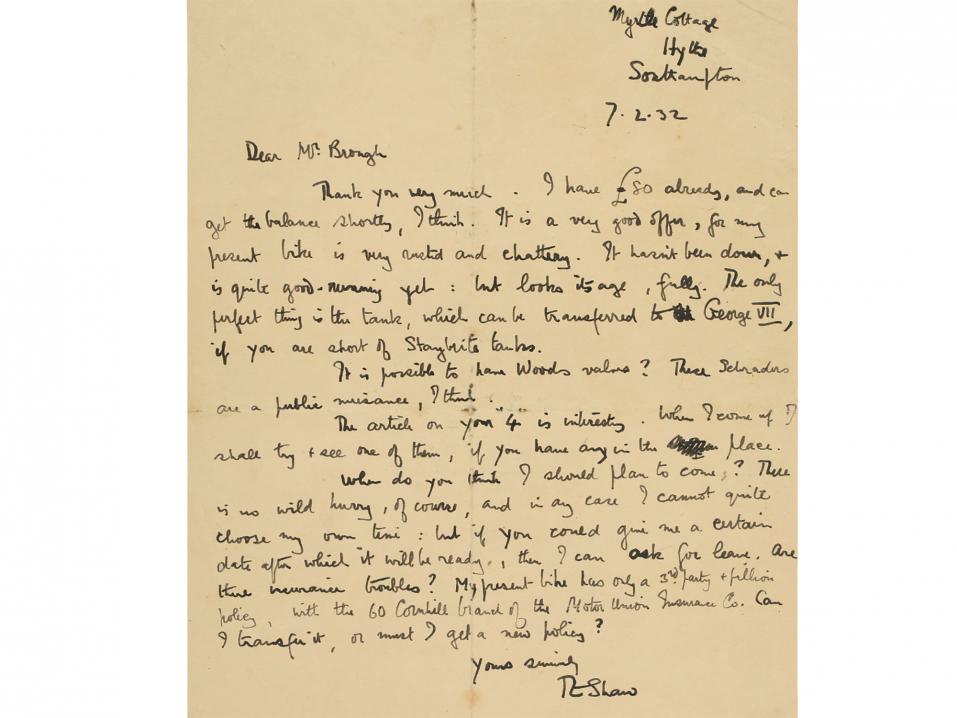 Myrtle Cottage
Hythe
Southampton
7.2.32
Dear Mr. Brough
Thank you very much. I have £80 already, and can
get the balance shortly, I think. It is a very good offer, for my
present bike is very rusted and chattery. It hasn't been down, +
is quite good-running yet: but looks its age, fully. The only
perfect thing is the tank, which can be transferred to George VII,
if you are short of Staybrite tanks.
It is possible to have Woods valves? These Schraders
are a public nuisance, I think.
The article on your "4" is interesting. When I come up I
shall try + see one of them, if you have any in the place.
When do you think I should plan to come,? There
is no wild hurry, of course, and in any case I cannot quite
choose my own time: but if you could give me a certain
date after which it will be ready, then I can ask for leave. Are
there insurance troubles? My present bike has only a 3rd party + pillion
policy, with the 60 Cornhill branch of the Motor Union Insurance Co. Can
I transfer it, or must I get a new policy?
Yours sincerely
TEShaw